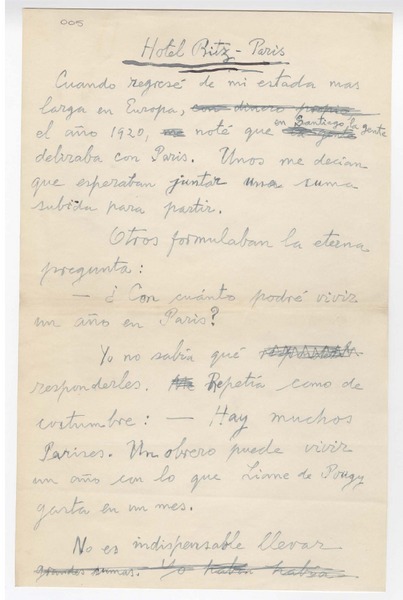 005
Hotel Ritz - Paris
Cuando regresé de mi estada mas
larga en Europa, con dinero propio
el año 1920, me noté que en Santiago la gente
deliraba con Paris. Unos me decian
que esperaban juntar una suma
subida para partir.
Otros formulaban la eterna
pregunta:
— ¿Con cuánto podré vivir
un año en Paris?
Yo no sabía qué
responderles. Repetía como de
costumbre: — Hay muchos
Parises. Un obrero puede vivir
un año con lo que Liane de Pougy
gasta en un mes.
No es indispensable llevar
grandes sumas. Yo había